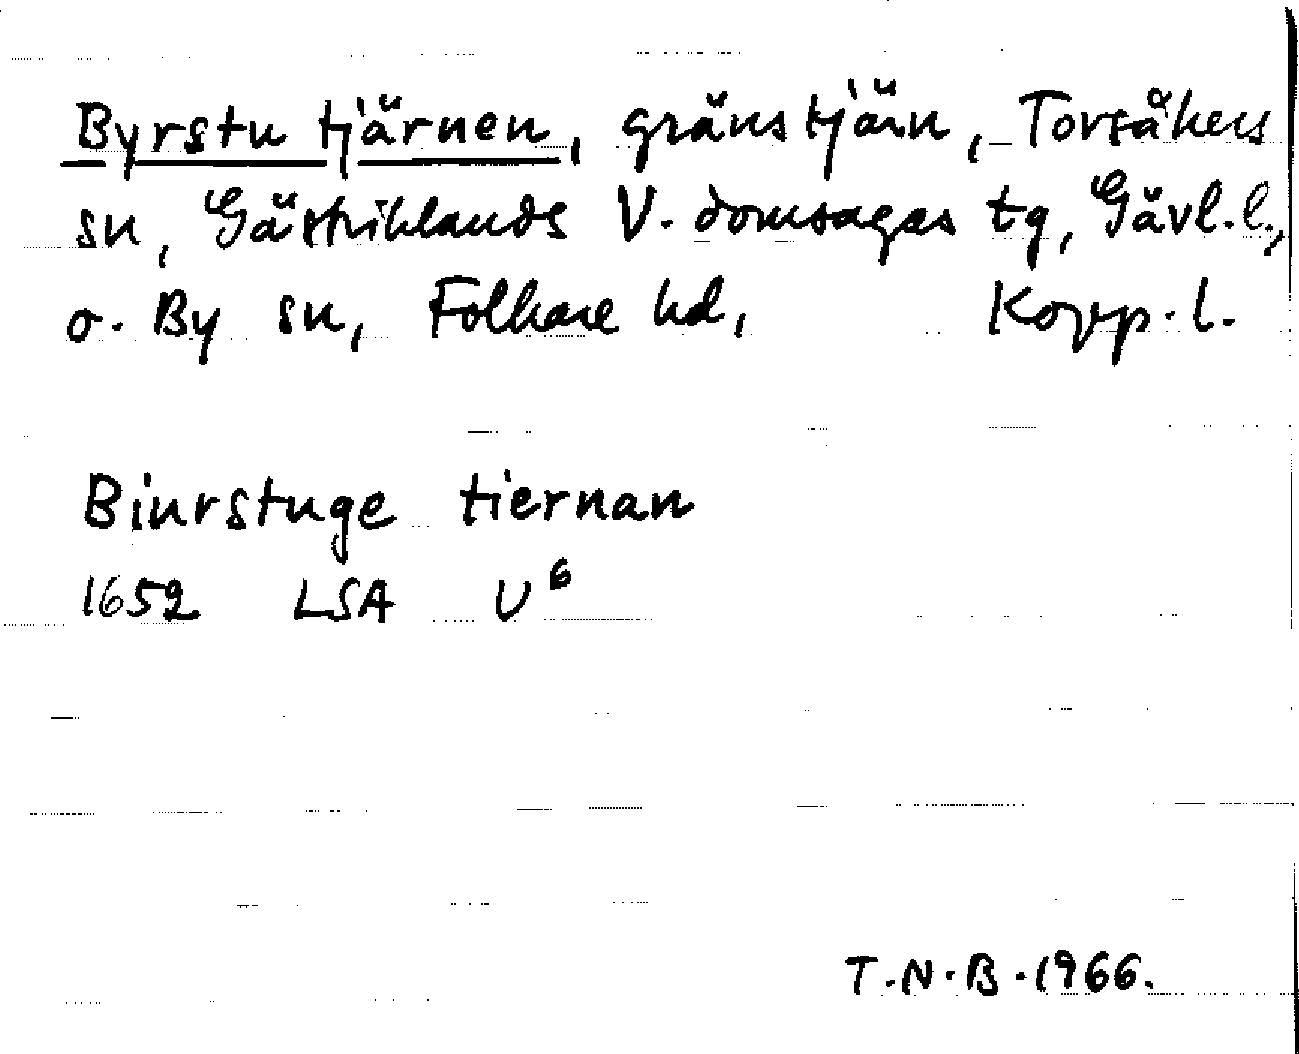 Byrstutjärnen, gränstjärn, Torsåkers
sn, Gästriklands V. domsagas tg, Gävl. l.,
o. By sn, Folkare hd, Kopp. l.
Biurstuge tiernan
1652 LSA U⁶
T.N.B. 1966.